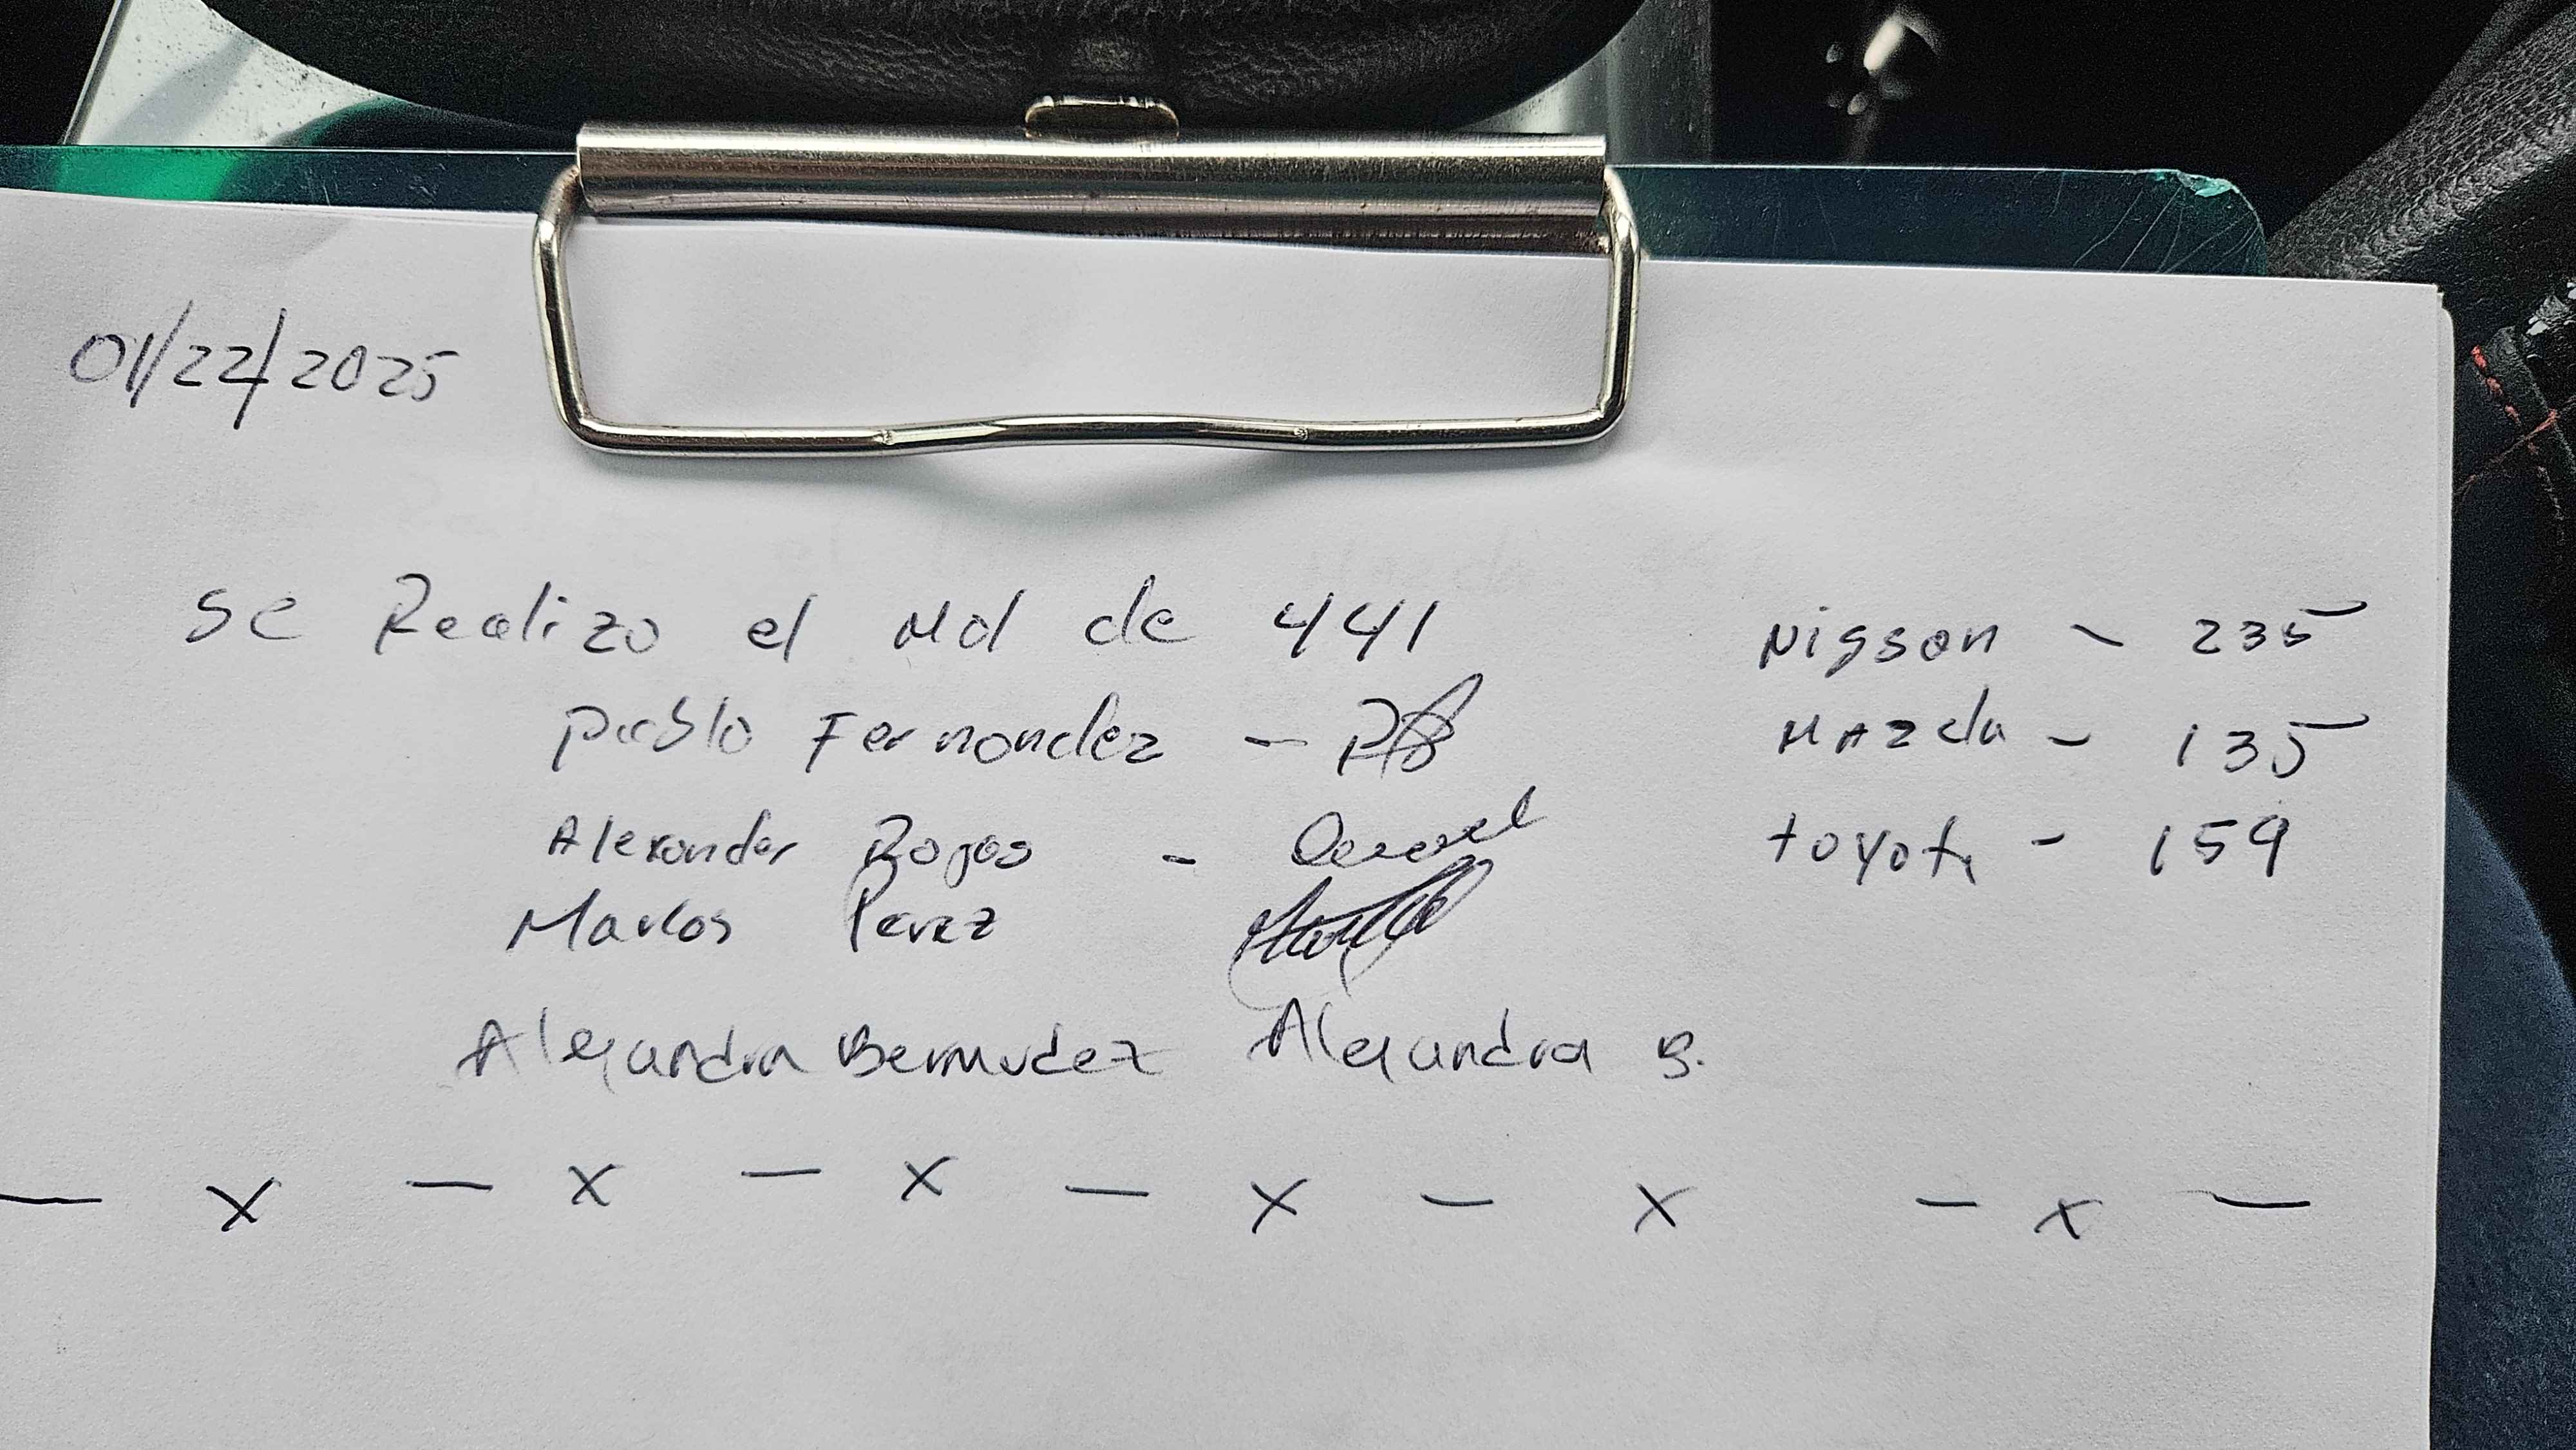 01/22/2025
Se Realizo el Md de 441
Pablo Fernandez -
Alexander Rojas -
Marlos Perez
Alejandra Bermudez Alejandra B.
Nissan - 235
Mazda - 135
toyota - 159
— x — x — x — x — x — x —